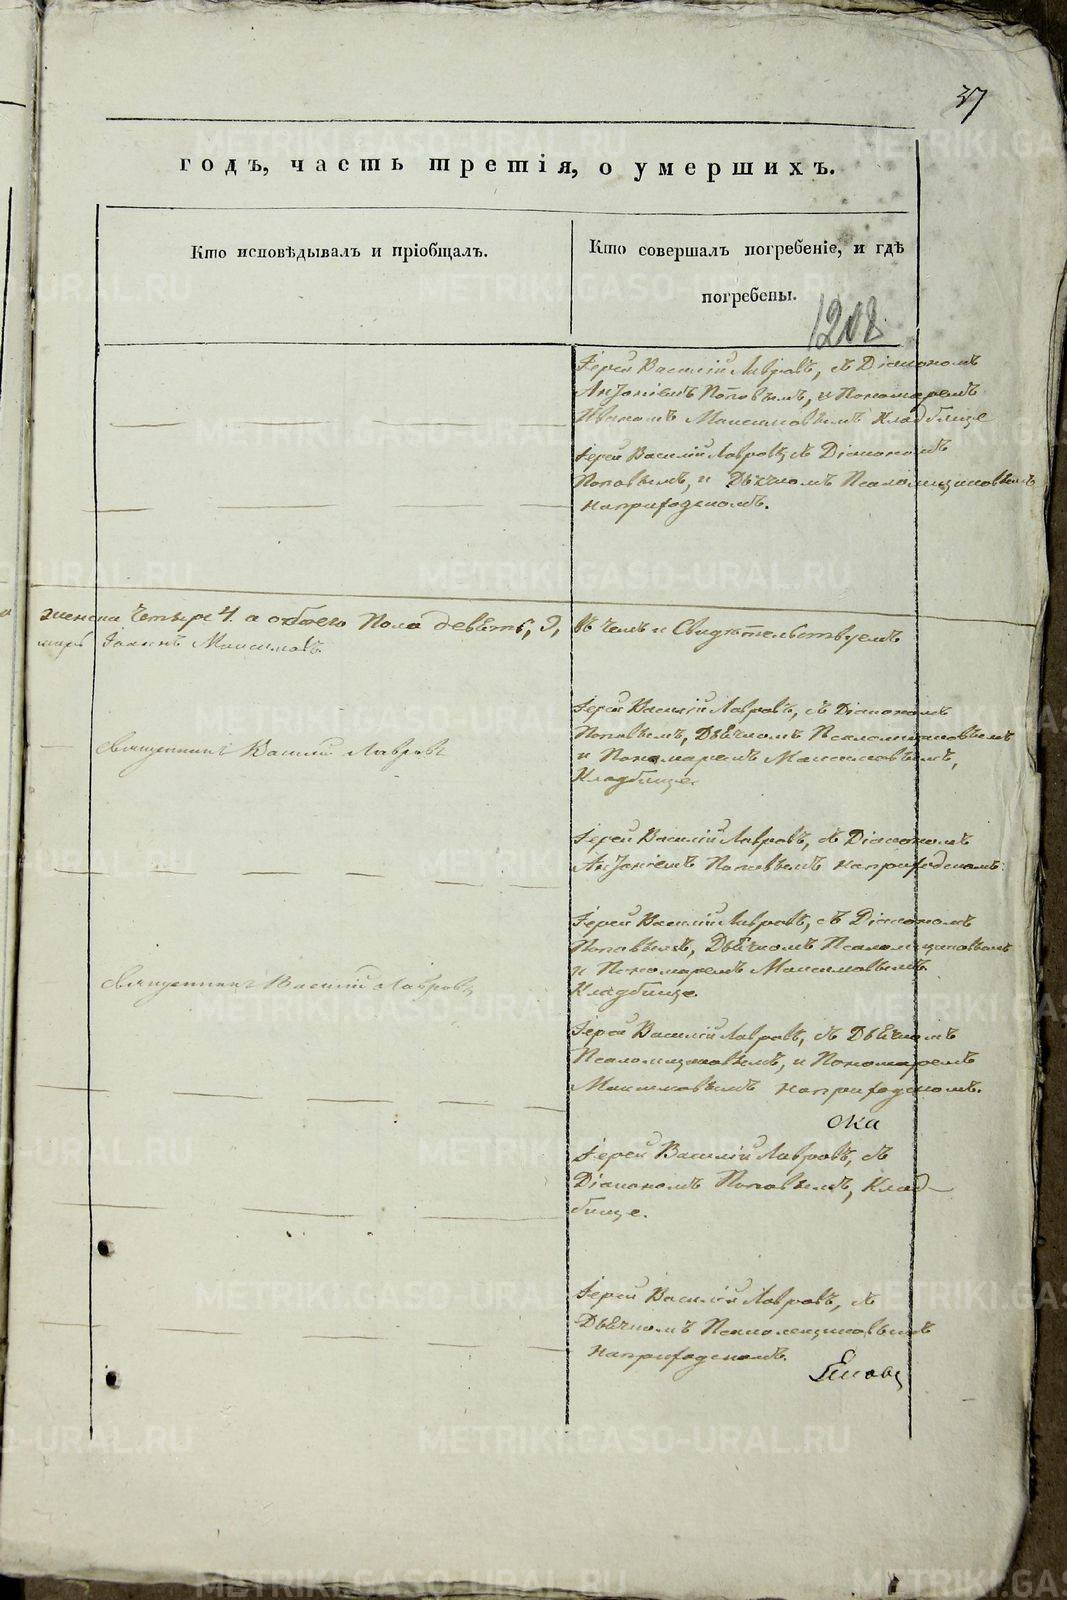 37
годъ, часть третія, о умершихъ.
Кто исповѣдывалъ и пріобщалъ.
Кто совершалъ погребеніе, и гдѣ
погребены.
1208
Іерей Василій Лавровъ, съ Діакономъ
Поповымъ, и Пономаремъ
Иваномъ Максимовымъ Кладбище
Іерей Василій Лавровъ съ Діакономъ
Поповымъ, и Дьячкомъ Псаломщиковымъ
наприходскомъ.
женска четыре 4. а обоего Пола девять, 9, въ чемъ и Свидѣтельствуемъ
Іоаннъ Максимовъ
Священникъ Василій Лавровъ
Іерей Василій Лавровъ, съ Діакономъ
Поповымъ, Дьячкомъ Псаломщиковымъ
и Пономаремъ Максимовымъ,
Кладбище.
Іерей Василій Лавровъ, съ Діакономъ
Поповымъ наприходскомъ.
Іерей Василій Лавровъ, съ Діакономъ
Поповымъ, Дьячкомъ Псаломщиковымъ
и Пономаремъ Максимовымъ
Кладбище.
Священникъ Василий Лавровъ
Іерей Василій Лавровъ, съ Дьячкомъ
Псаломщиковымъ, и Пономаремъ
Максимовымъ наприходскомъ.
ока
Іерей Василій Лавровъ, съ
Діакономъ Поповымъ, Клад-
бище.
Іерей Василій Лавровъ, съ
Дьячкомъ Псаломщиковымъ
наприходскомъ.
METRIKI.GASO-URAL.RU